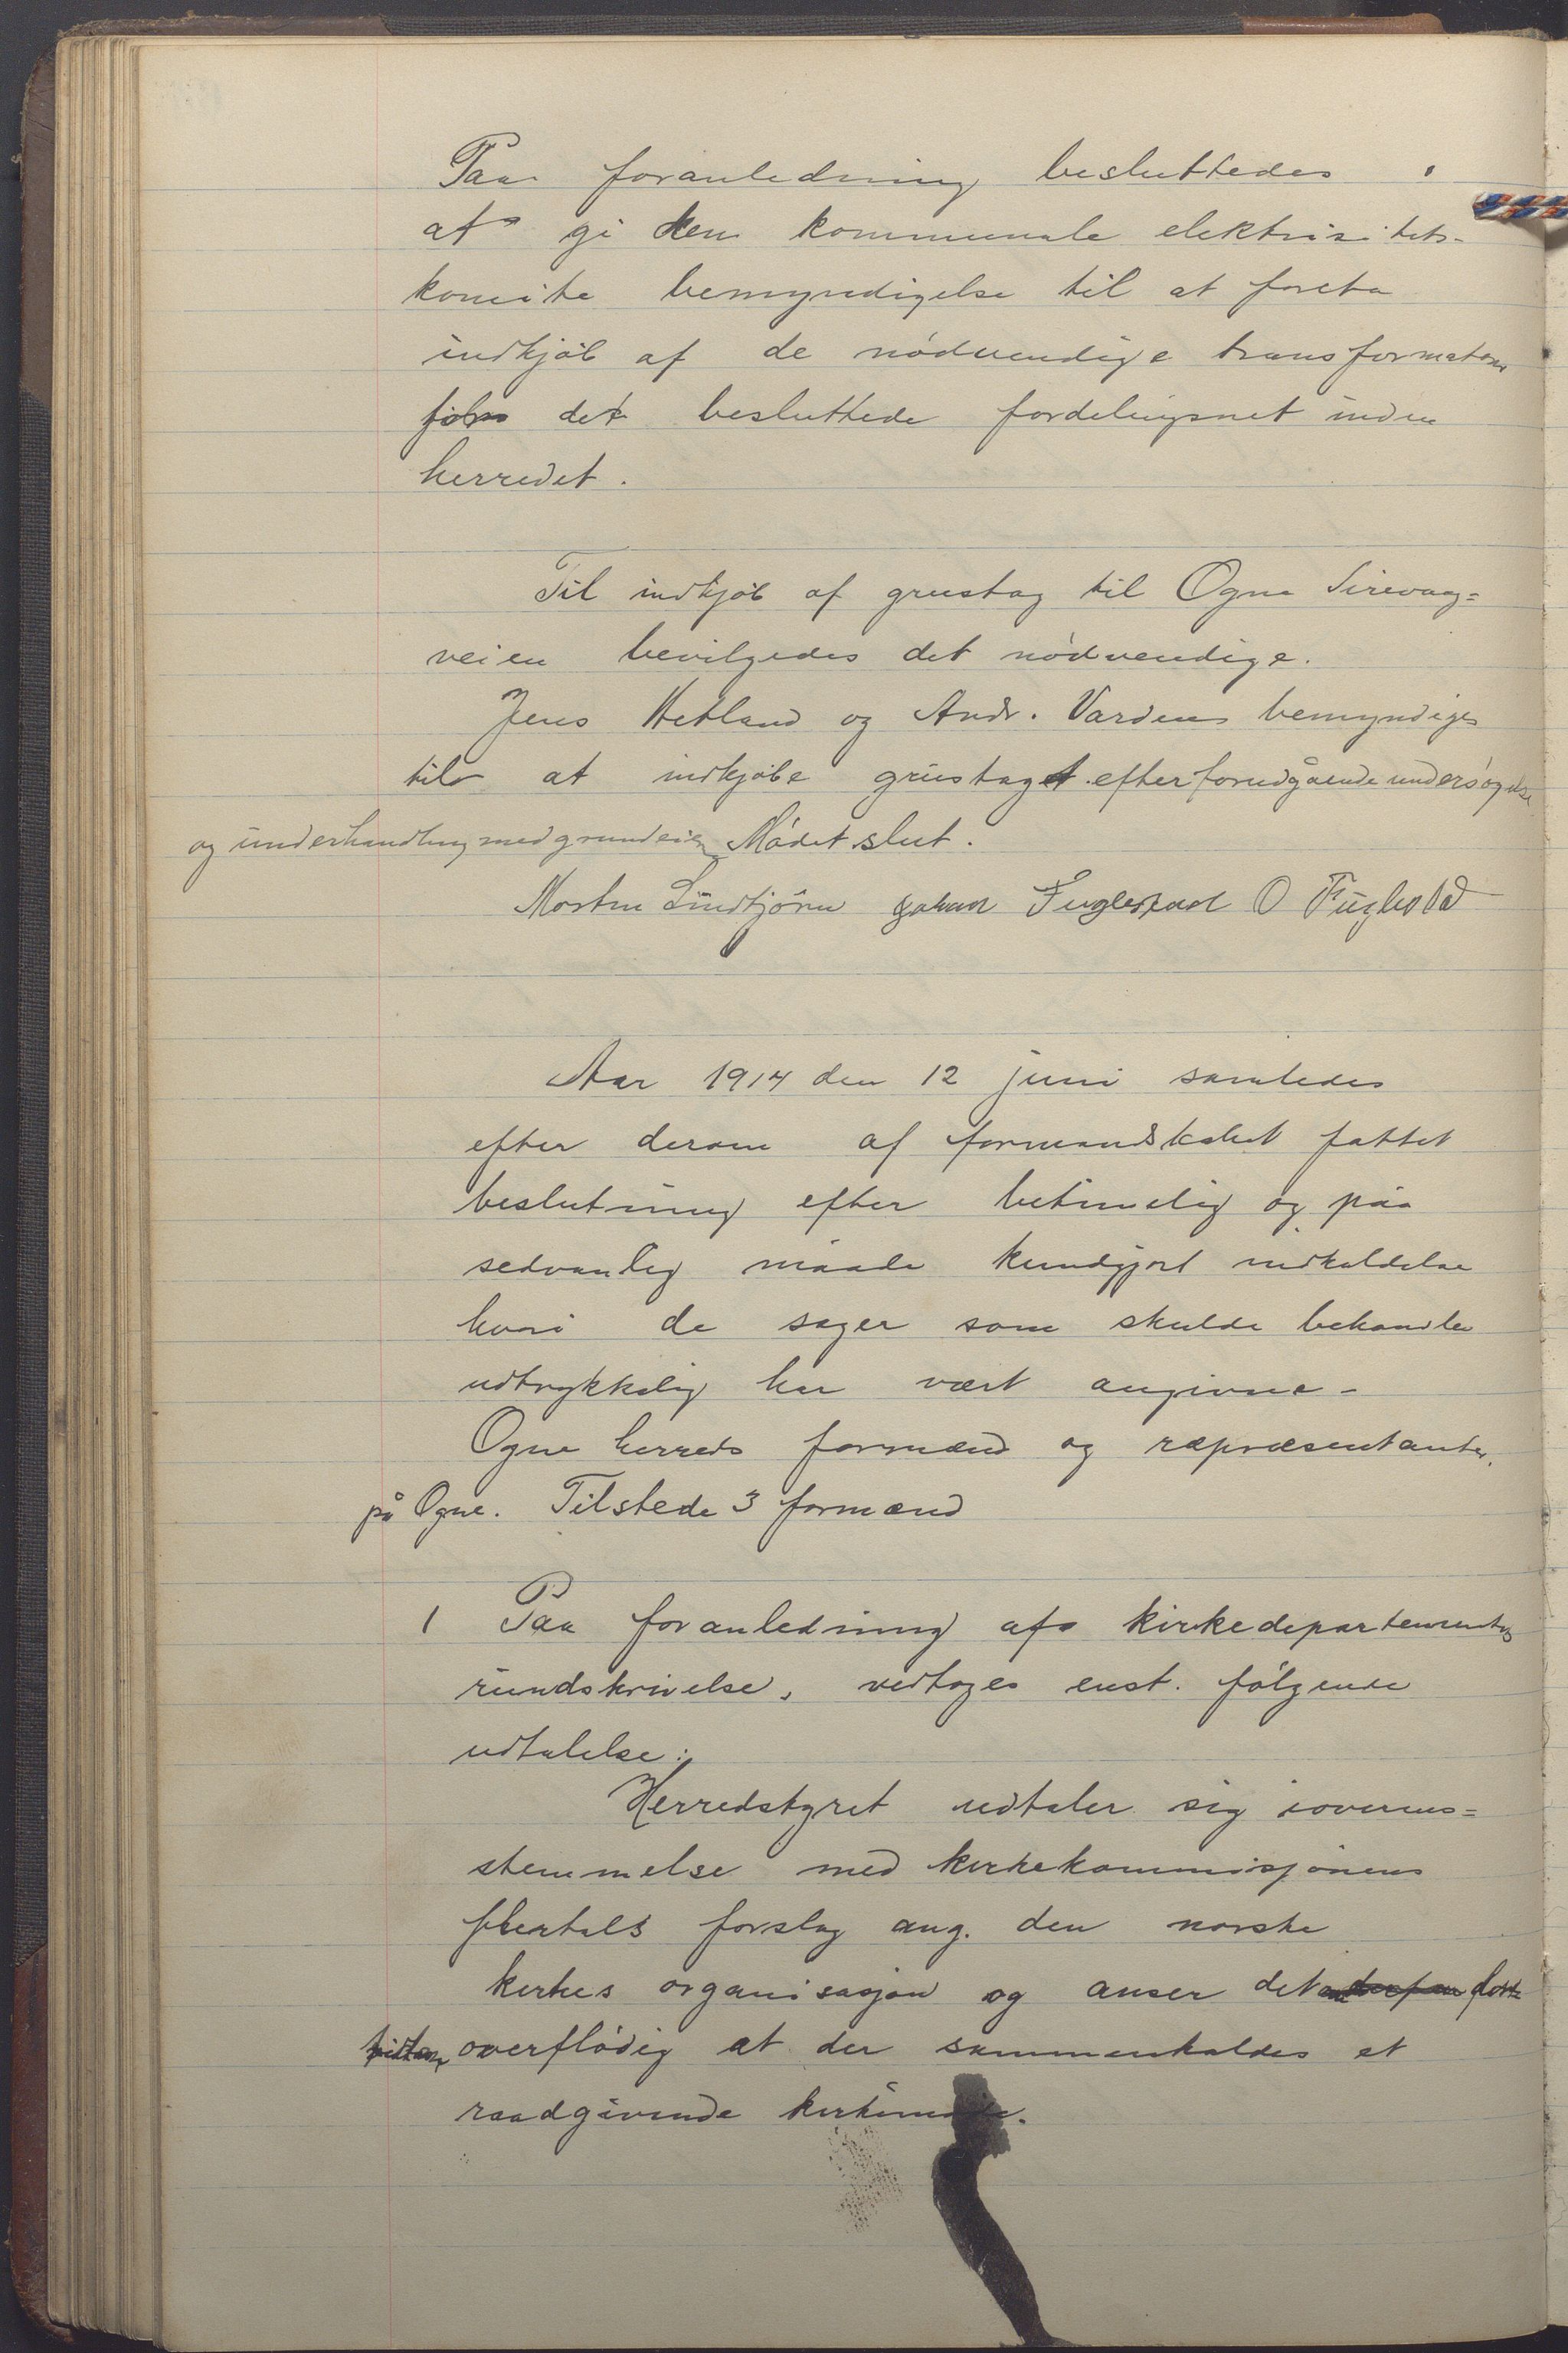 Paa foranledning besluttedes
at gi den kommunale elektrisitets-
komite bemyndigelse til at foreta
indkjøb af de nødvendige transformatorer
det besluttede fordelingsnet inden
herredet.
Til indkjøb af grustag til Ogne Sirevaag=
veien bevilgedes det nødvendige.
Jens Hetland og Andr. Varden bemyndiges
til at indkjøbe grustaget efter forudgående undersøgelse
og underhandling med grundeier Mødet slut.
Morten Lindtjørn Johan Fuglestad O Fuglestad
Aar 1914 den 12 juni samledes
efter derom af formandskabet fattet
beslutning efter betimelig og paa
sedvanlig maade kundgjort indkaldelse
hvori de sager som skulde behandles
udtrykkelig har vært angivne -
Ogne herreds formænd og repræsentanter.
på Ogne. Tilstede 3 formænd
1 Paa foranledning af kirkedepartementets
rundskrivelse, vedtoges enst. følgende
udtalelse:
Herredstyret udtaler sig ioverens=
stemmelse med kirkekommisjonens
flertals forslag ang. den norske
kirkes organisasjon og anser det
overflødig at der sammenkaldes et
raadgivende kirkemøde.